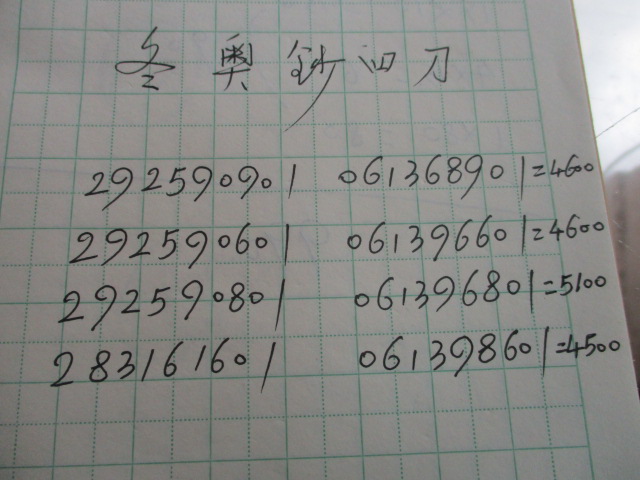 冬奥鈔四刀
292590901 061368901=4600
292590601 061396601=4600
292590801 061396801=5100
283161601 061398601=4500